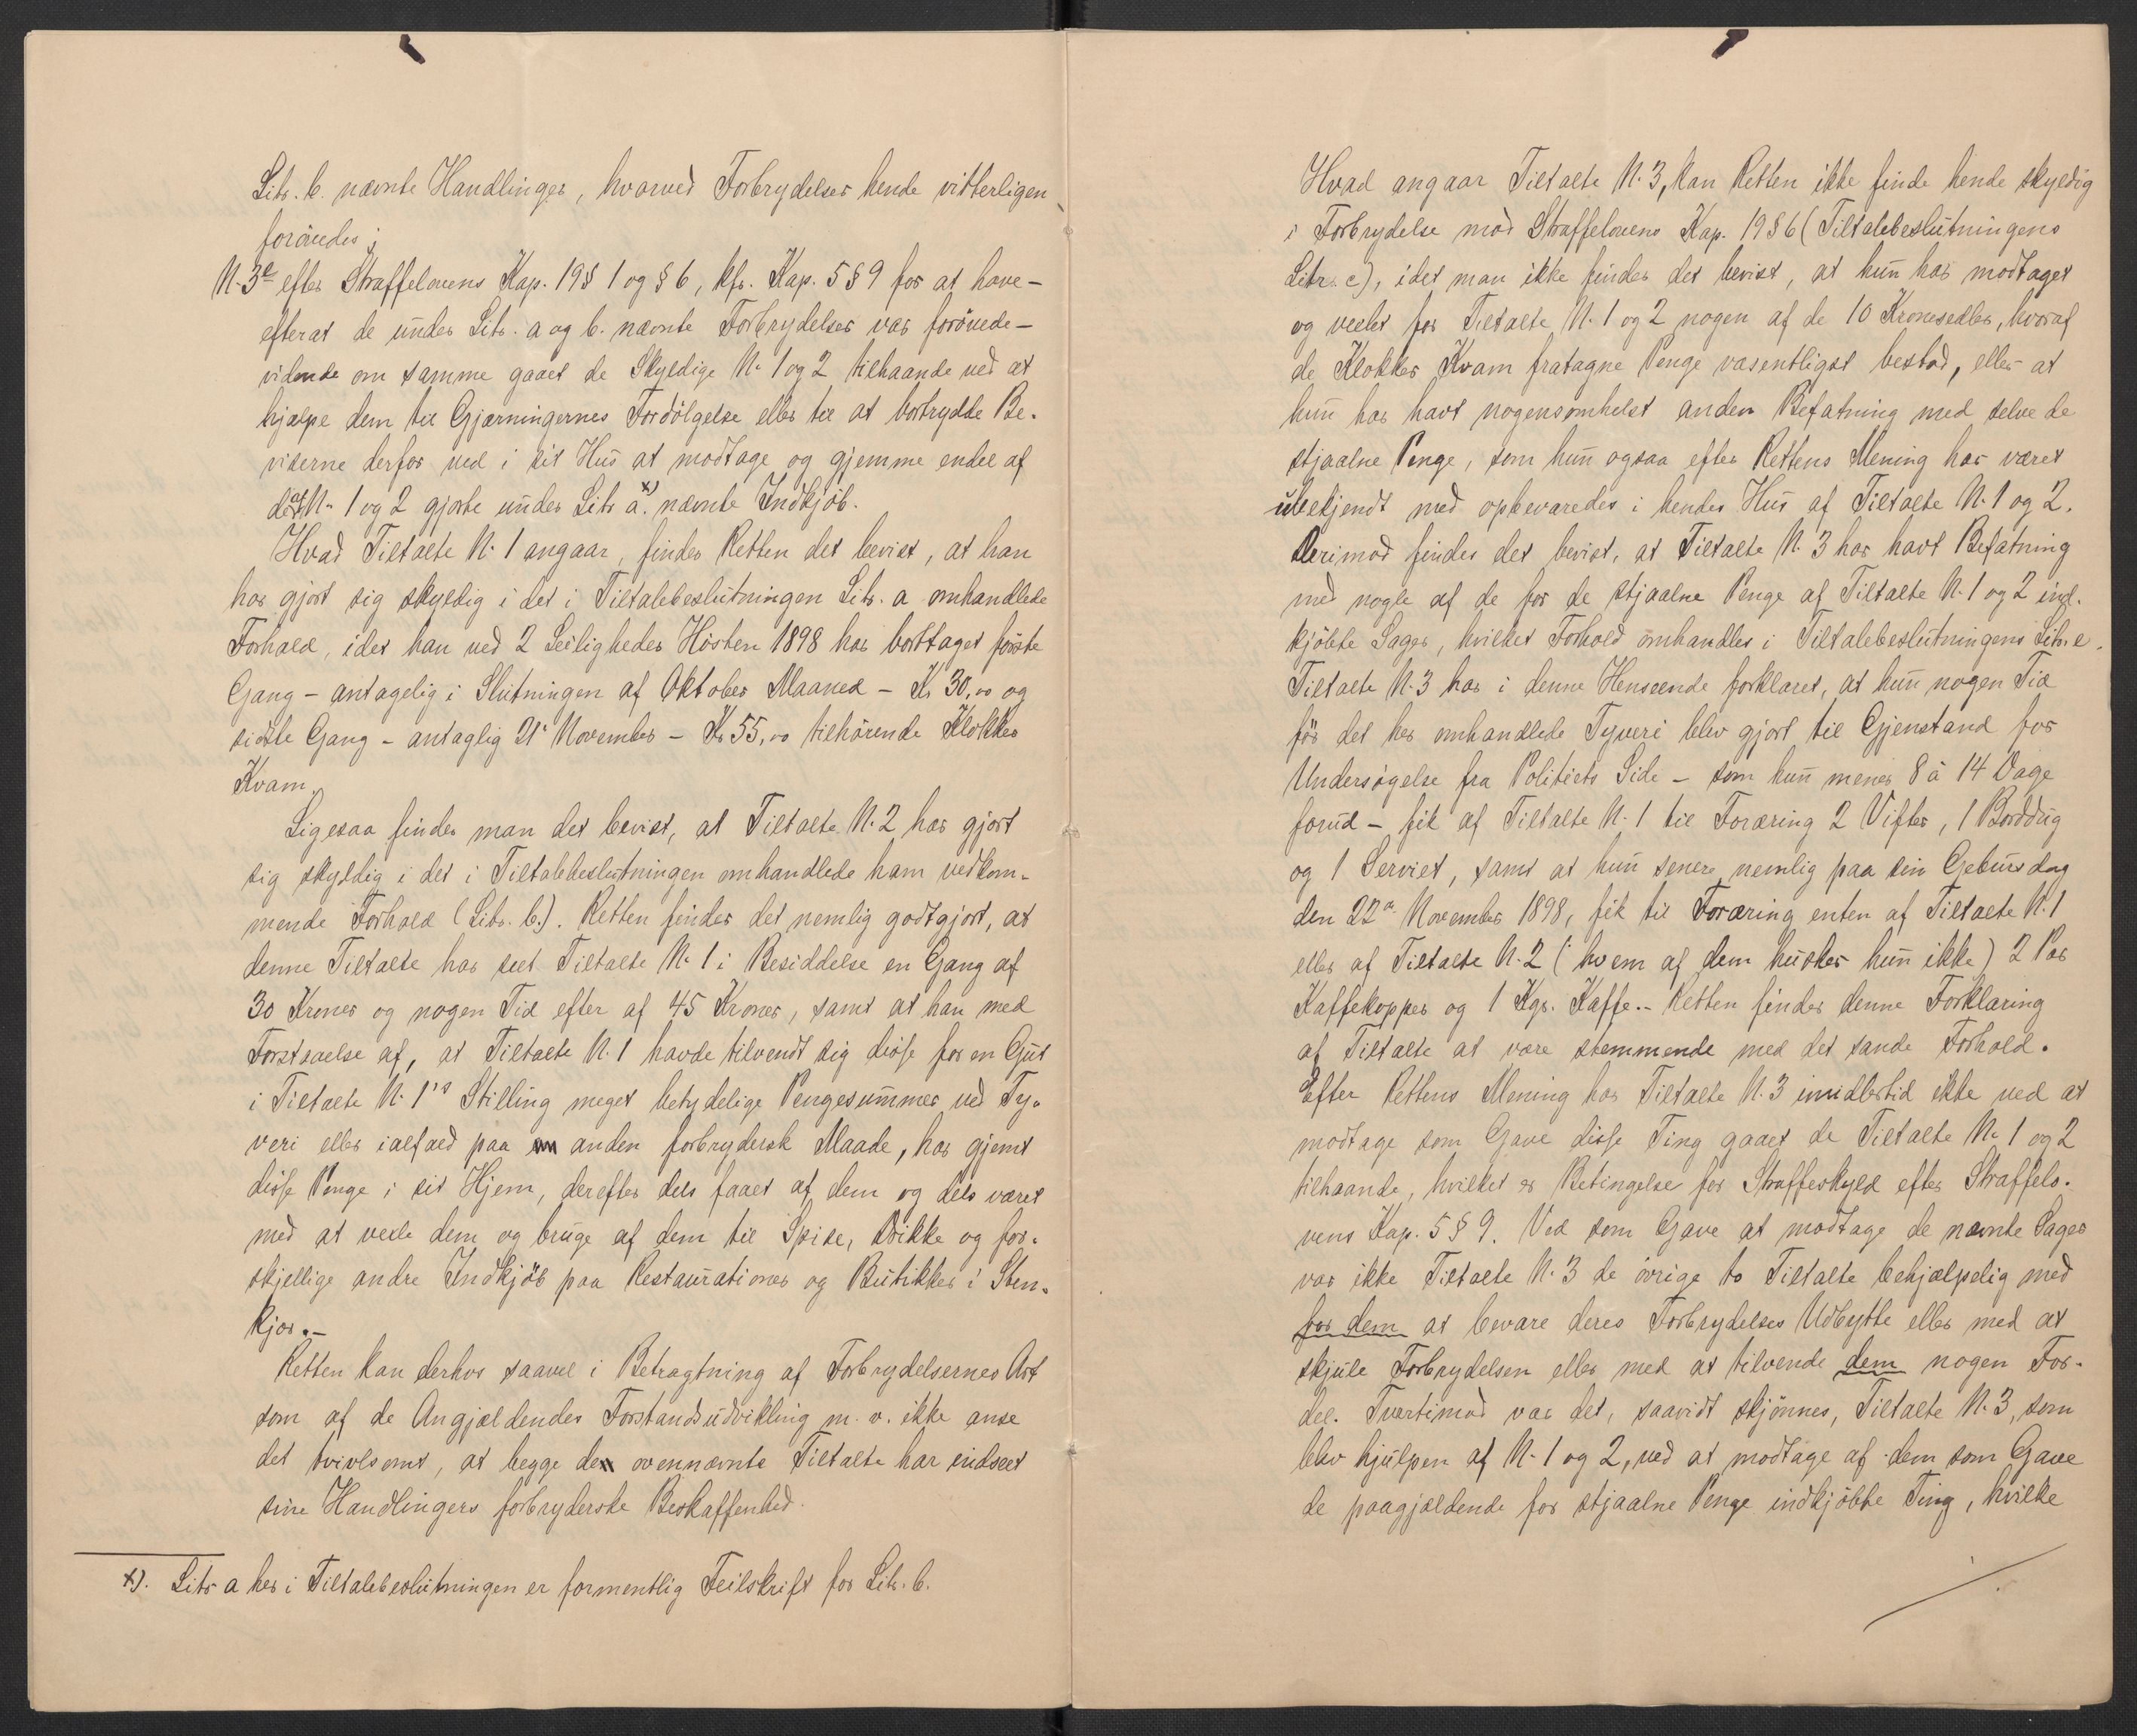 Litr. b. nævnte Handlinger, hvorved Forbrydelser hende vitterligen
forövedes;
N. 3 e efter Straffelovens Kap. 19 § 1 og § 6, kfr. Kap. 5 § 9 for at have –
efterat de under Litr. a og b. nævnte Forbrydelser var forövede –
vidende om samme gaaet de Skyldige N. 1 og 2 tilhaande ved at
hjælpe dem til Gjærningernes Fordölgelse eller til at bortrydde Be-
viserne derfor ved i sit Hus at modtage og gjemme endel af
de af N. 1 og 2 gjorte under Litr a. x) nævnte Indkjöb.
Hvad Tiltalte N. 1 angaar, finder Retten det bevist, at han
har gjort sig skyldig i det i Tiltalebeslutningen Litr. a omhandlede
Forhold, idet han ved 2 Leiligheder Hösten 1898 har borttaget förste
Gang – antagelig i Slutningen af Oktober Maaned – Kr 30,00 og
sidste Gang – antaglig 21' November – Kr 55,00 tilhörende Klokker
Kvam.
Ligesaa finder man det bevist, at Tiltalte N. 2 har gjort
sig skyldig i det i Tiltalebeslutningen omhandlede ham vedkom-
mende Forhold (Litr. b.). Retten finder det nemlig godtgjort, at
denne Tiltalte har seet Tiltalte N. 1 i Besiddelse en Gang af
30 Kroner og nogen Tid efter af 45 Kroner, samt at han med
Forstaaelse af, at Tiltalte N. 1 havde tilvendt sig disse for en Gut
i Tiltalte N. 1's Stilling meget betydelige Pengesummer ved Ty-
veri eller ialfald paa anden forbrydersk Maade, har gjemt
disse Penge i sit Hjem, derefter dels faaet af dem og dels været
med at vexle dem og bruge af dem til Spise, Drikke og for-
skjellige andre Indkjöb paa Restaurationer og Butikker i Sten-
kjær. –
Retten kan derhos saavel i Betragtning af Forbrydelsernes Art
som af de Angjældendes Forstandsudvikling m. v. ikke anse
det tvivlsomt, at begge de ovennævnte Tiltalte har indseet
sine Handlingers forbryderske Beskaffenhed.
x). Litr a her i Tiltalebeslutningen er formentlig Feilskrift for Litr. b.
Hvad angaar Tiltalte N. 3, kan Retten ikke finde hende skyldig
i Forbrydelse mod Straffelovens Kap. 19 § 6 (Tiltalebeslutningens
Litr. c), idet man ikke finder det bevist, at hun har modtaget
og vexlet for Tiltalte N. 1 og 2 nogen af de 10 Kronesedler, hvoraf
de Klokker Kvam fratagne Penge væsentligst bestod, eller at
hun har havt nogensomhelst anden Befatning med selve de
stjaalne Penge, som hun ogsaa efter Rettens Mening har været
ubekjendt med opbevaredes i hendes Hus af Tiltalte N. 1 og 2.
Derimod findes det bevist, at Tiltalte N. 3 har havt Befatning
med nogle af de for de stjaalne Penge af Tiltalte N. 1 og 2 ind-
kjöbte Sager, hvilket Forhold omhandles i Tiltalebeslutningens Litr. e.
Tiltalte N. 3 har i denne Henseende forklaret, at hun nogen Tid
för det her omhandlede Tyveri blev gjort til Gjenstand for
Undersögelse fra Politiets Side – som hun mener 8 à 14 Dage
forud – fik af Tiltalte N. 1 til Foræring 2 Vifter, 1 Borddug
og 1 Serviet, samt at hun senere, nemlig paa sin Geburtsdag
den 22de November 1898, fik til Foræring enten af Tiltalte N. 1
eller af Tiltalte N. 2 (hvem af dem husker hun ikke) 2 Par
Kaffekopper og 1 Kgr. Kaffe. – Retten finder denne Forklaring
af Tiltalte at være stemmende med det sande Forhold.
Efter Rettens Mening har Tiltalte N. 3 imidlertid ikke ved at
modtage som Gave disse Ting gaaet de Tiltalte N. 1 og 2
tilhaande, hvilket er Betingelse for Straffeskyld efter Straffelo-
vens Kap. 5 § 9. Ved som Gave at modtage de nævnte Sager
var ikke Tiltalte N. 3 de övrige to Tiltalte behjælpelig med
for dem at bevare deres Forbrydelses Udbytte eller med at
skjule Forbrydelsen eller med at tilvende dem nogen For-
del. Tvertimod var det, saavidt skjönnes, Tiltalte N. 3, som
blev hjulpen af N. 1 og 2, ved at modtage af dem som Gave
de paagjældende for stjaalne Penge indkjöbte Ting, hvilke